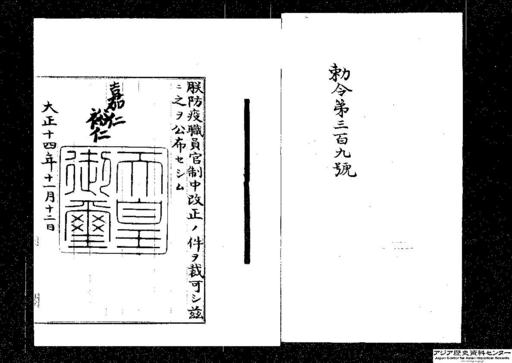 勅令第三百九號
朕防疫職員官制中改正ノ件ヲ裁可シ茲
ニ之ヲ公布セシム
嘉仁
裕仁
天皇
御璽
大正十四年十一月十二日
アジア歴史資料センター
Japan Center for Asian Historical Records